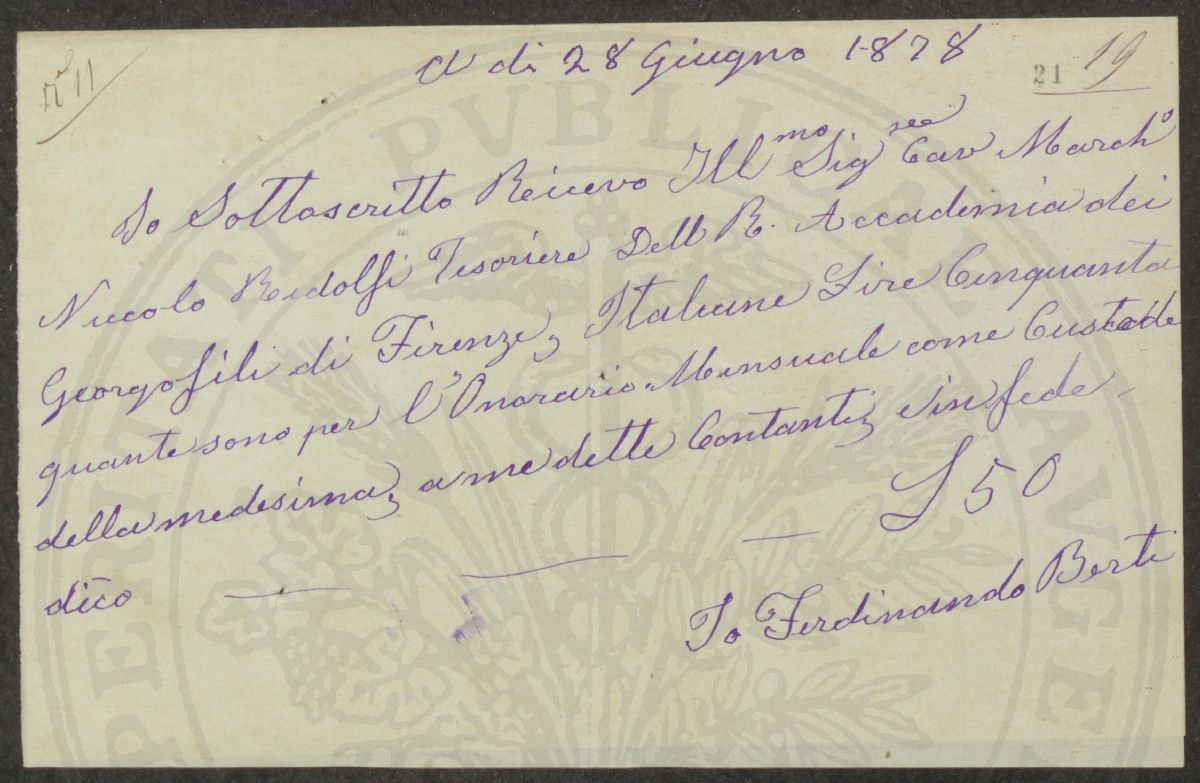 N° 11
A di 28 Giugno 1878
21 19
Io Sottoscritto Ricevo Ill.mo Sig.re Cav March°
Niccolo Ridolfi Tesoriere Dell R. Accademia dei
Georgofili di Firenze, Italiane Lire Cinquanta
quante sono per l'Onorario Mensuale come Custode
della medesima, a me dette Contanti, e in fede
dico
L 50
Io Ferdinando Berti
PERITATI PVBLICAE AVGE